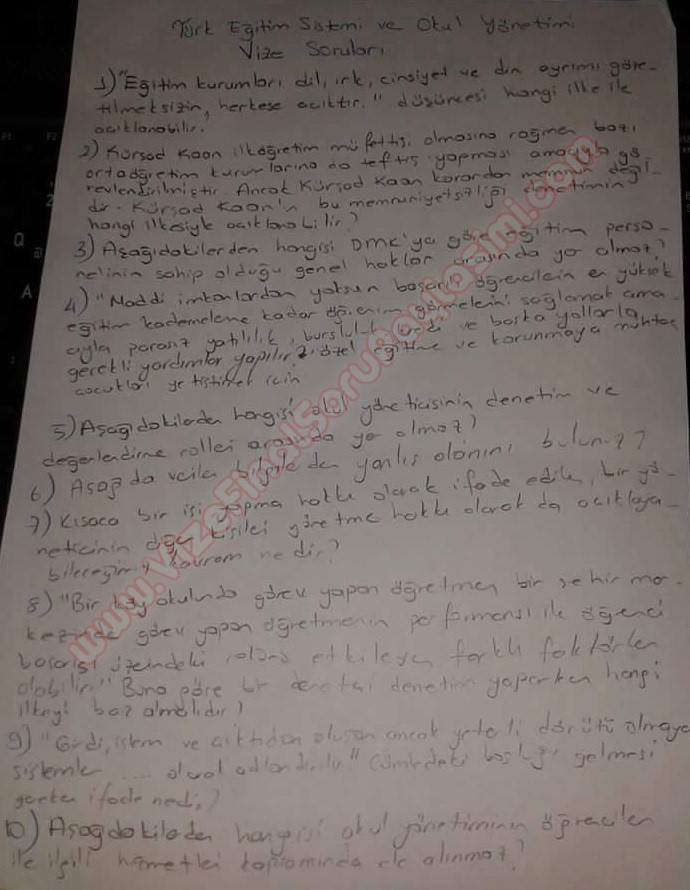 Türk Eğitim Sistemi ve Okul Yönetimi
Vize Soruları
1) "Eğitim kurumları dil, ırk, cinsiyet ve din ayrımı göze-
tilmeksizin, herkese açıktır." düşüncesi hangi ilke ile
açıklanabilir.
2) Kürşad Kaan ilköğretim müfettişi olmasına rağmen bazı
ortaöğretim kurumlarına da teftiş yapması amacıyla gö-
revlendirilmiştir. Ancak Kürşad Kaan karardan memnun değil-
dir. Kürşad Kaan'ın bu memnuniyetsizliği denetimin
hangi ilkesiyle açıklanabilir?
3) Aşağıdakilerden hangisi DMK'ya göre eğitim perso-
nelinin sahip olduğu genel haklar arasında yer almaz?
4) "Maddi imkanlardan yoksun başarılı öğrencilerin en yüksek
eğitim kademelerine kadar öğrenim görmelerini sağlamak ama-
cıyla parasız yatılılık, bursluluk, kredi ve başka yollarla
gerekli yardımlar yapılır. özel eğitime ve korunmaya muhtaç
çocukları yetiştirmek için
5) Aşağıdakilerden hangisi okul yöneticisinin denetim ve
değerlendirme rolleri arasında yer almaz?
6) Aşağıda verilen bilgilerden yanlış olanını bulunuz?
7) Kısaca bir işi yapma hakkı olarak ifade edilen, bir yö-
neticinin diğer kişileri yönetme hakkı olarak da açıklaya-
bileceğimiz kavram nedir?
8) "Bir köy okulunda görev yapan öğretmen bir şehir mer-
kezinde görev yapan öğretmenin performansı ile öğrenci
başarısı üzerindeki etkileyen farklı faktörler
olabilir." Buna göre bir denetçi denetim yaparken hangi
ilkeyi baz almalıdır?
9) "Girdi, işlem ve çıktıdan oluşan ancak yeterli dönütü olmayan
sistemler .... olarak adlandırılır." Cümledeki boşluğa gelmesi
gereken ifade nedir?
10) Aşağıdakilerden hangisi okul yönetiminin öğrenciler
ile ilgili hizmetleri kapsamında ele alınmaz?
www.VizeFinalSoruPaylasimi.com
Q
A
F1
F2